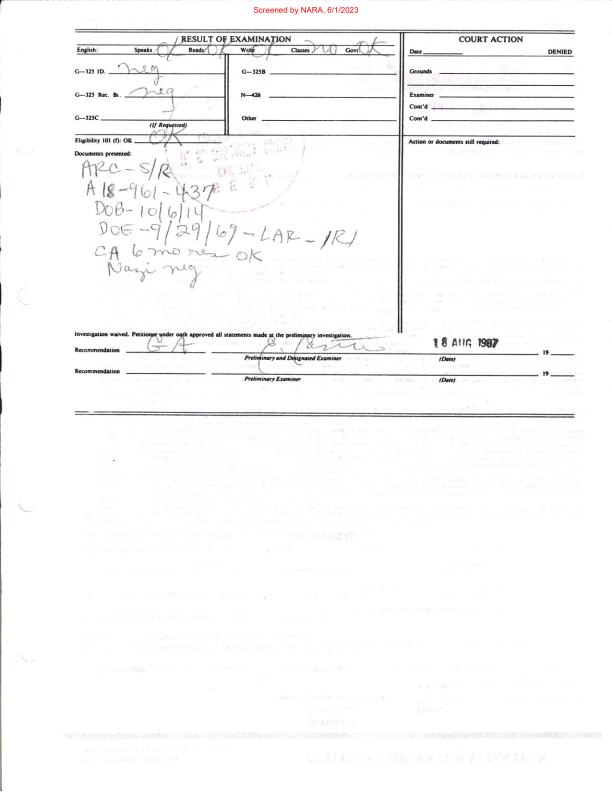 Screened by NARA, 6/1/2023
RESULT OF EXAMINATION
English: Speaks OK Reads OK Write OK Classes no Govt OK
G—325 ID. neg
G—325B
G—325 Rec. Br. neg
N—426
G—325C
(If Requested)
Other
Eligibility 101 (f): OK OK
Documents presented:
ARC - S/R
A18-961-437
DOB- 10/6/14
DOE- 9/29/69 - LAR - IR1
CA 6 mo res OK
Nazi neg
COURT ACTION
Date DENIED
Grounds
Examiner
Cont'd
Cont'd
Action or documents still required:
Investigation waived. Petitioner under oath approved all statements made at the preliminary investigation.
Recommendation GA
18 AUG 1987 19
Preliminary and Designated Examiner (Date)
Recommendation 19
Preliminary Examiner (Date)